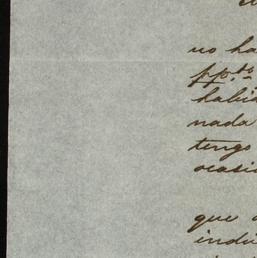 no ha
pp.tos
habia
nada
tengo
ocasi
que
indi